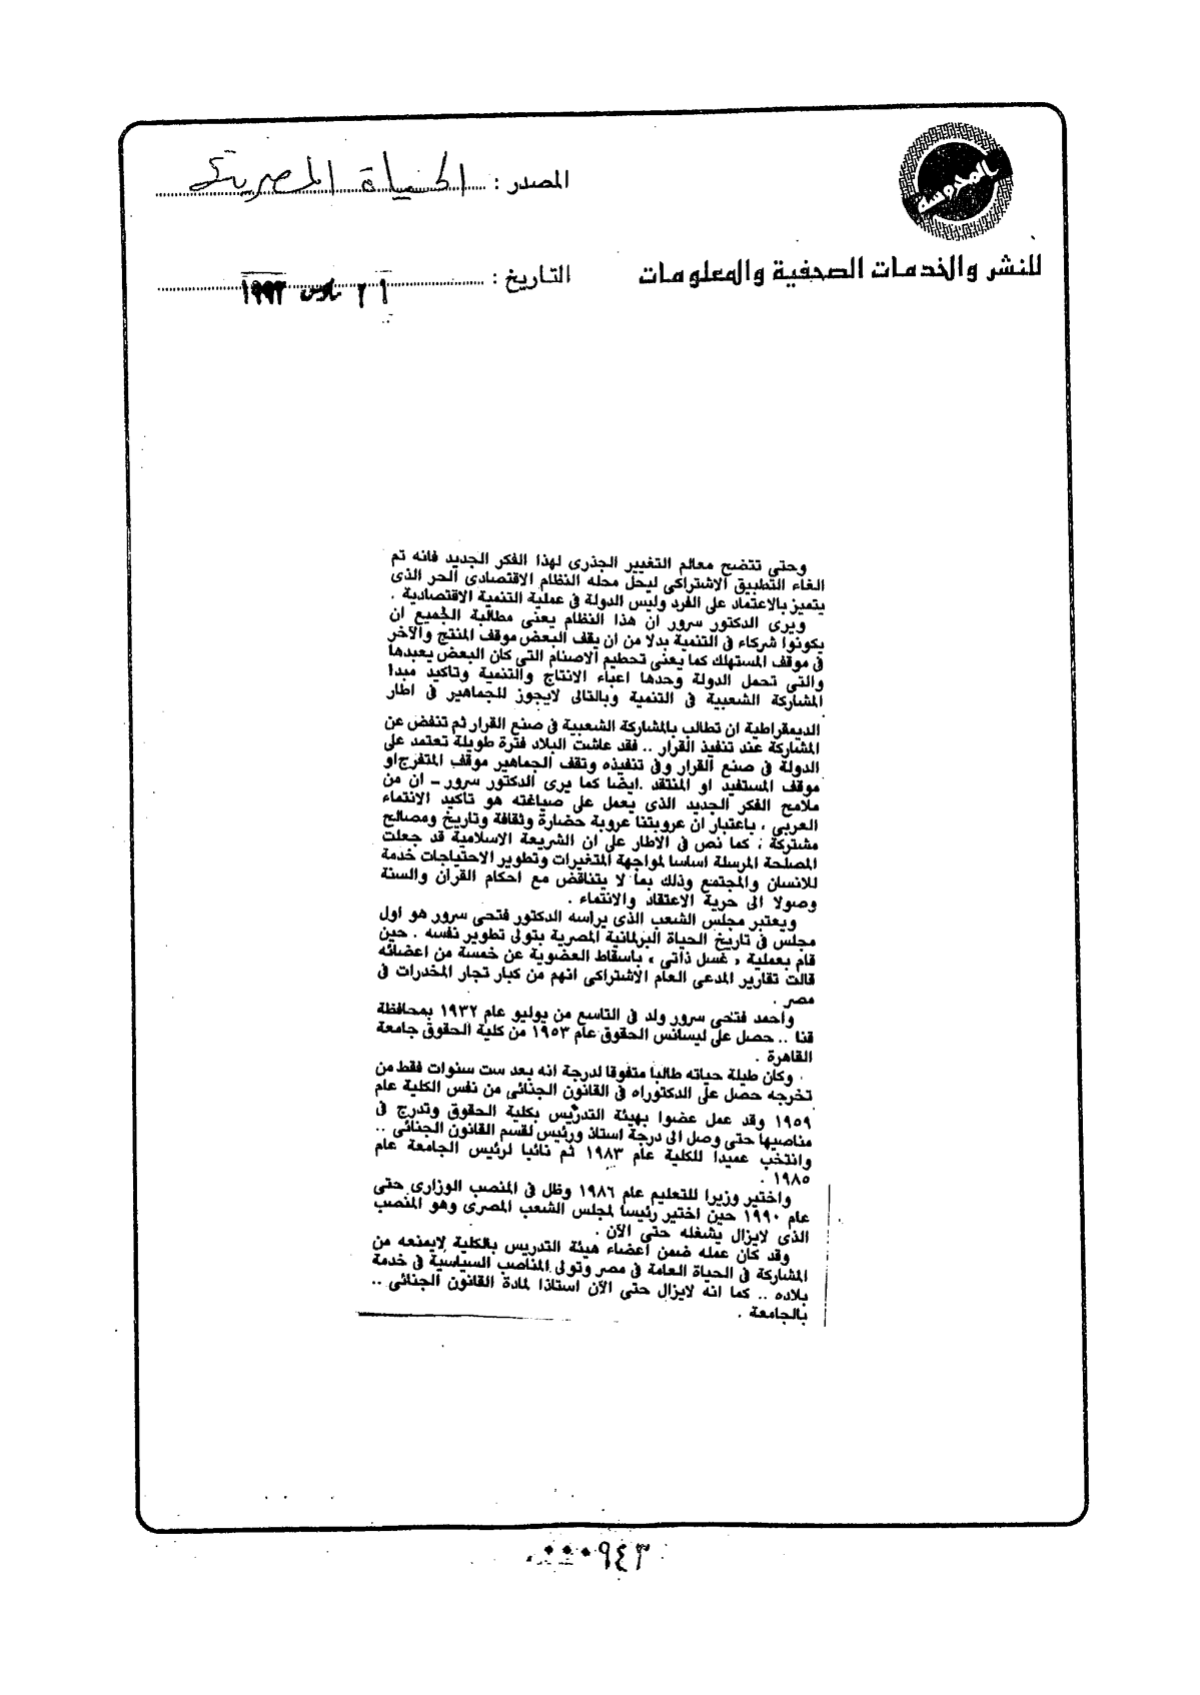 المدوسة
المصدر : الحياة المصرية
للنشر والخدمات الصحفية والمعلومات
التاريخ : ٢٦ مارس ١٩٩٢
وحتى تتضح معالم التغيير الجذرى لهذا الفكر الجديد فانه تم
الغاء التطبيق الاشتراكى ليحل محله النظام الاقتصادى الحر الذى
يتميز بالاعتماد على الفرد وليس الدولة فى عملية التنمية الاقتصادية .
ويرى الدكتور سرور ان هذا النظام يعنى مطالبة الجميع ان
يكونوا شركاء فى التنمية بدلا من ان يقف البعض موقف المنتج والآخر
فى موقف المستهلك كما يعنى تحطيم الاصنام التى كان البعض يعبدها
والتى تحمل الدولة وحدها اعباء الانتاج والتنمية وتاكيد مبدا
المشاركة الشعبية فى التنمية وبالتالى لايجوز للجماهير فى اطار
الديمقراطية ان تطالب بالمشاركة الشعبية فى صنع القرار ثم تنفض عن
المشاركة عند تنفيذ القرار .. فقد عاشت البلاد فترة طويلة تعتمد على
الدولة فى صنع القرار وفى تنفيذه وتقف الجماهير موقف المتفرج او
موقف المستفيد او المنتقد . ايضا كما يرى الدكتور سرور - ان من
ملامح الفكر الجديد الذى يعمل على صياغته هو تاكيد الانتماء
العربى ، باعتبار ان عروبتنا عروبة حضارة وثقافة وتاريخ ومصالح
مشتركة ، كما نص فى الاطار على ان الشريعة الاسلامية قد جعلت
المصلحة المرسلة اساسا لمواجهة المتغيرات وتطوير الاحتياجات خدمة
للانسان والمجتمع وذلك بما لا يتناقض مع احكام القران والسنة
وصولا الى حرية الاعتقاد والانتماء .
ويعتبر مجلس الشعب الذى يراسه الدكتور فتحى سرور هو اول
مجلس فى تاريخ الحياة البرلمانية المصرية يتولى تطوير نفسه . حين
قام بعملية « غسل ذاتى » باسقاط العضوية عن خمسة من اعضائه
قالت تقارير المدعى العام الاشتراكى انهم من كبار تجار المخدرات فى
مصر .
واحمد فتحى سرور ولد فى التاسع من يوليو عام ١٩٣٢ بمحافظة
قنا .. حصل على ليسانس الحقوق عام ١٩٥٣ من كلية الحقوق جامعة
القاهرة .
وكان طيلة حياته طالبا متفوقا لدرجة انه بعد ست سنوات فقط من
تخرجه حصل على الدكتوراه فى القانون الجنائى من نفس الكلية عام
١٩٥٩ وقد عمل عضوا بهيئة التدريس بكلية الحقوق وتدرج فى
مناصبها حتى وصل الى درجة استاذ ورئيس لقسم القانون الجنائى ..
وانتخب عميدا للكلية عام ١٩٨٣ ثم نائبا لرئيس الجامعة عام
١٩٨٥ .
واختير وزيرا للتعليم عام ١٩٨٦ وظل فى المنصب الوزارى حتى
عام ١٩٩٠ حين اختير رئيسا لمجلس الشعب المصرى وهو المنصب
الذى لايزال يشغله حتى الآن .
وقد كان عمله ضمن اعضاء هيئة التدريس بالكلية لايمنعه من
المشاركة فى الحياة العامة فى مصر وتولى المناصب السياسية فى خدمة
بلاده .. كما انه لايزال حتى الآن استاذا لمادة القانون الجنائى ..
بالجامعة .
٠٠٠٩٤٣